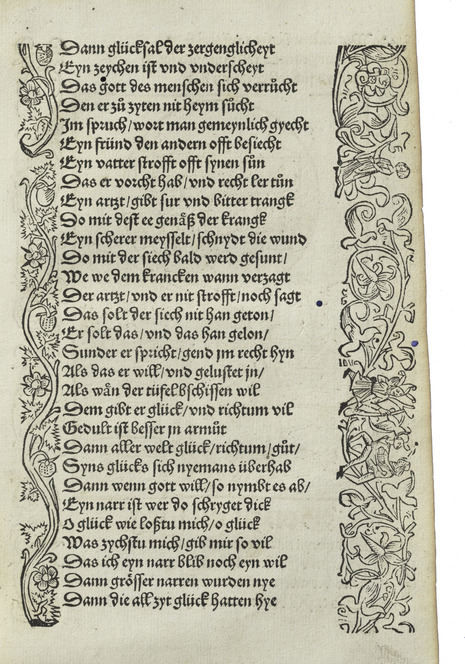 Dann glücksal der zergenglicheyt
Eyn zeychen ist vnd vnderscheyt
Das gott des menschen sich verrůcht
Den er zů zyten nit heym sůcht
Im spruch/wort man gemeynlich gyecht
Eyn fründ den andern offt besiecht
Eyn vatter strofft offt synen sůn
Das er vorcht hab/vnd recht ler tůn
Eyn artzt/gibt sur vnd bitter trangk
Do mit dest ee genäß der krangk
Eyn scherer meysselt/schnydt die wund
Do mit der siech bald werd gesunt/
We we dem krancken wann verzagt
Der artzt/vnd er nit strofft/noch sagt
Das solt der siech nit han geton/
Er solt das/vnd das han gelon/
Sunder er spricht/gend jm recht hyn
Als das er will/vnd gelustet jn/
Als wän der tüfel bschissen wil
Dem gibt er glück/vnd richtum vil
Gedult ist besser jn armůt
Dann aller welt glück/richtum/gůt/
Syns glücks sich nyemans überhab
Dann wenn gott will/so nymbt es ab/
Eyn narr ist wer do schryget dick
O glück wie loßtu mich/o glück
Was zychstu mich/gib mir so vil
Das ich eyn narr blib noch eyn wil
Dann grösser narren wurden nye
Dann die all zyt glück hatten hye